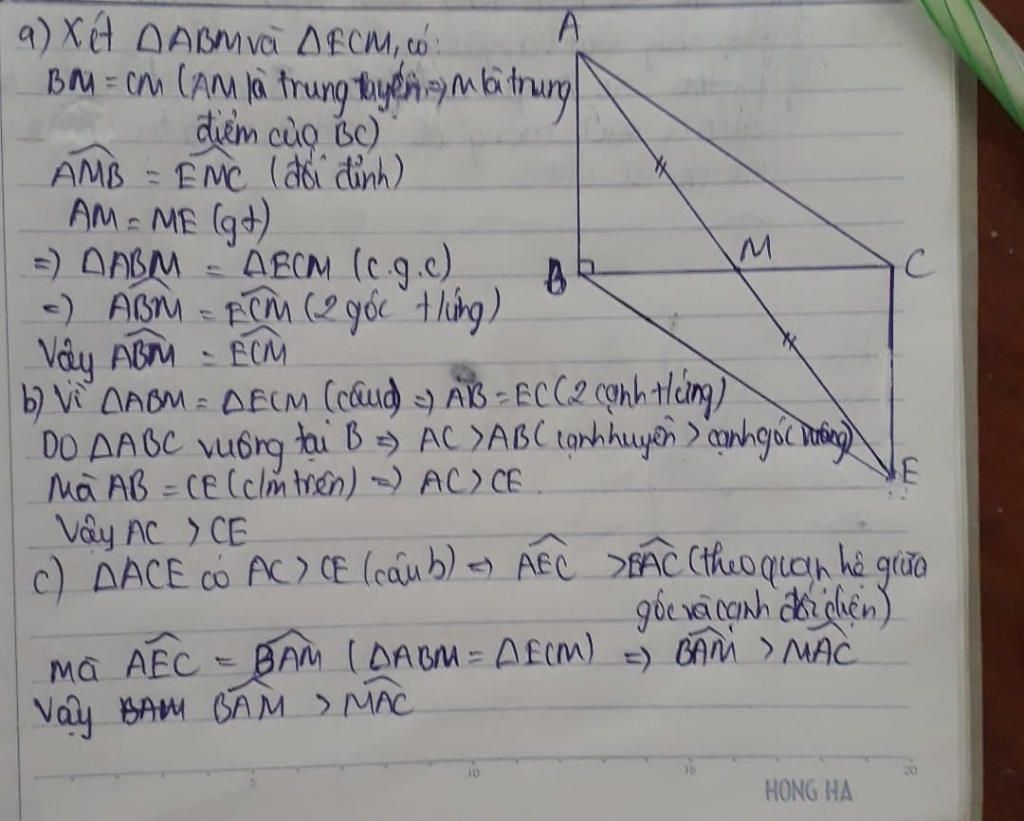 a) Xét ΔABM và ΔECM, có:
BM = CM (AM là trung tuyến ⇒ M là trung
điểm của BC)
AMB = EMC (đối đỉnh)
AM = ME (gt)
⇒ ΔABM = ΔECM (c.g.c)
⇒ ABM = ECM (2 góc t/ứng)
Vậy ABM = ECM
b) Vì ΔABM = ΔECM (câu a) ⇒ AB = EC (2 cạnh t/ứng)
Do ΔABC vuông tại B ⇒ AC > AB (cạnh huyền > cạnh góc vuông)
Mà AB = CE (c/m trên) ⇒ AC > CE
Vậy AC > CE
c) ΔACE có AC > CE (câu b) ⇒ AEC > EAC (theo quan hệ giữa
góc và cạnh đối diện)
Mà AEC = BAM (ΔABM = ΔECM) ⇒ BAM > MAC
Vậy BAM > MAC
A
B
M
C
E
5
10
15
20
HONG HA